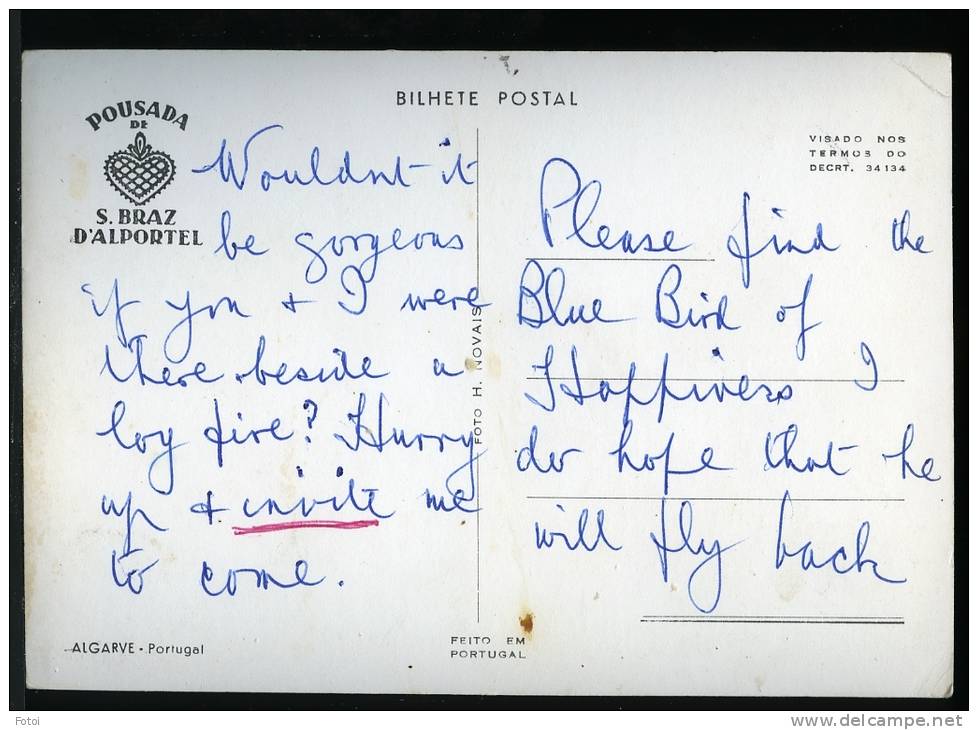 BILHETE POSTAL
POUSADA
DE
S. BRAZ
D'ALPORTEL
VISADO NOS
TERMOS DO
DECRT. 34134
Wouldnt it
be gorgeous
if you + I were
there beside a
log fire? Hurry
up + invite me
to come.
FOTO H. NOVAIS
Please find the
Blue Bird of
Happiness I
do hope that he
will fly back
ALGARVE - Portugal
FEITO EM
PORTUGAL
Fotoi
www.delcampe.net